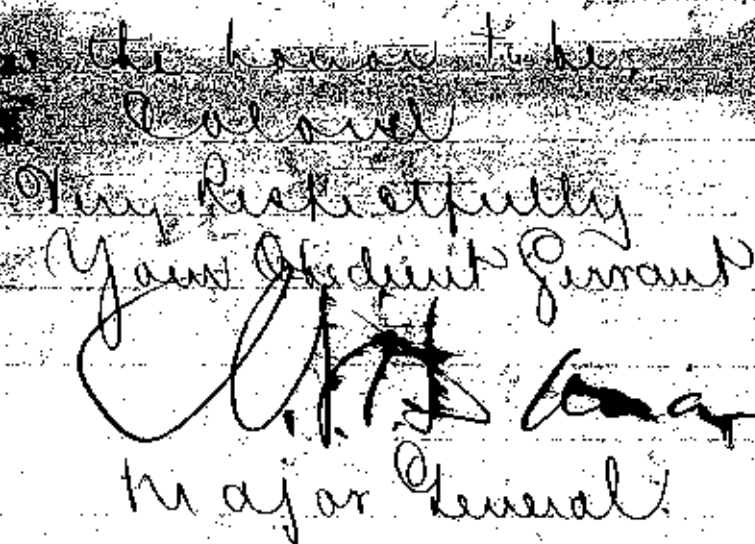 the honor to be,
Colonel
Very Respectfully
Your Obedient Servant
Major General